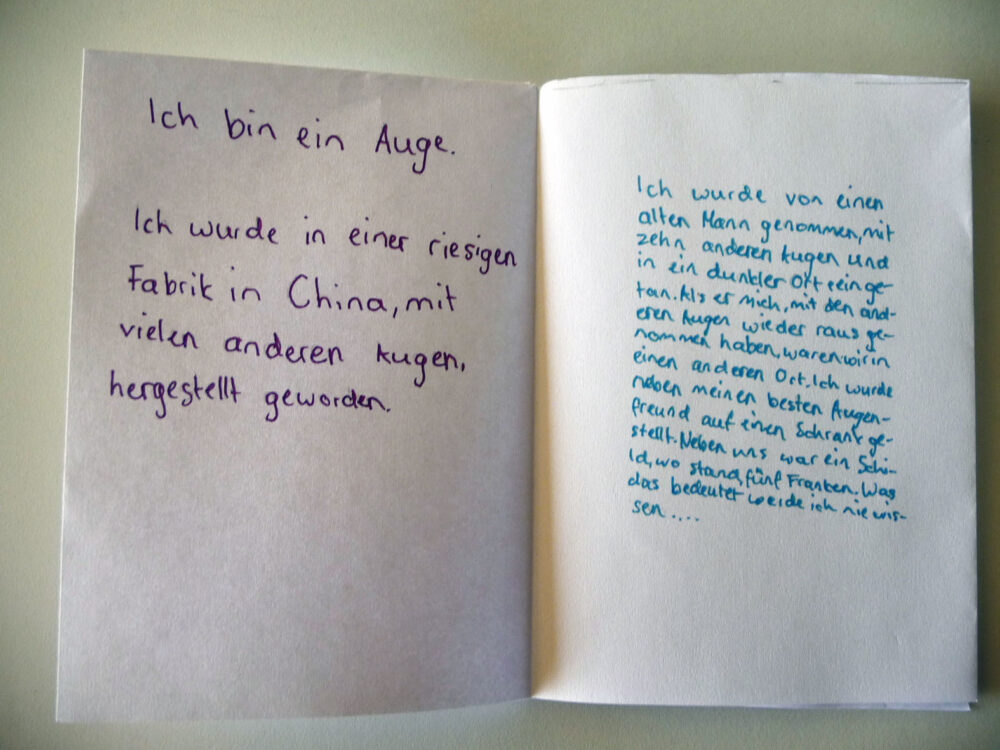 Ich bin ein Auge.
Ich wurde in einer riesigen
Fabrik in China, mit
vielen anderen Augen,
hergestellt geworden.
Ich wurde von einen
alten Mann genommen, mit
zehn anderen Augen und
in ein dunkler Ort einge-
tan. Als er mich, mit den and-
eren Augen wieder raus ge-
nommen haben, waren wir in
einen anderen Ort. Ich wurde
neben meinen besten Augen-
freund auf einen Schrank ge-
stellt. Neben uns war ein Schi-
ld, wo stand, fünf Franken. Was
das bedeutet werde ich nie wis-
sen....